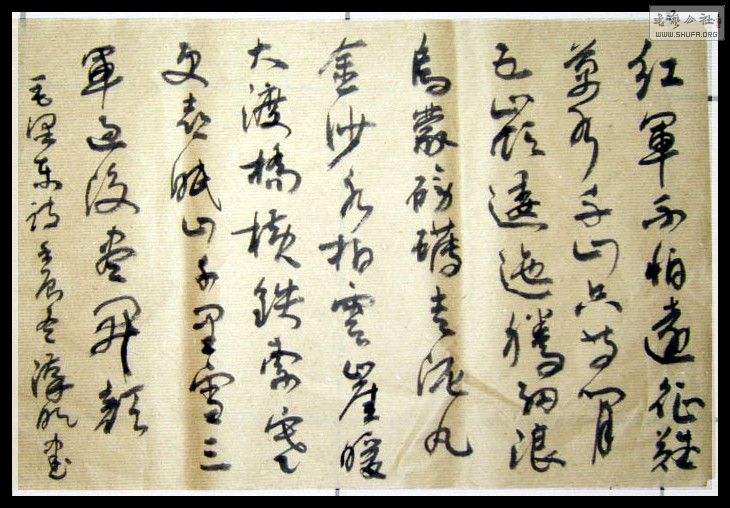 紅軍不怕遠征難
萬水千山只等閒
五嶺逶迤騰細浪
烏蒙磅礴走泥丸
金沙水拍雲崖暖
大渡橋橫鉄索寒
更喜岷山千里雪三
軍過後盡開顏
毛澤東詩壬辰書
书艺公社
WWW.SHUFA.ORG